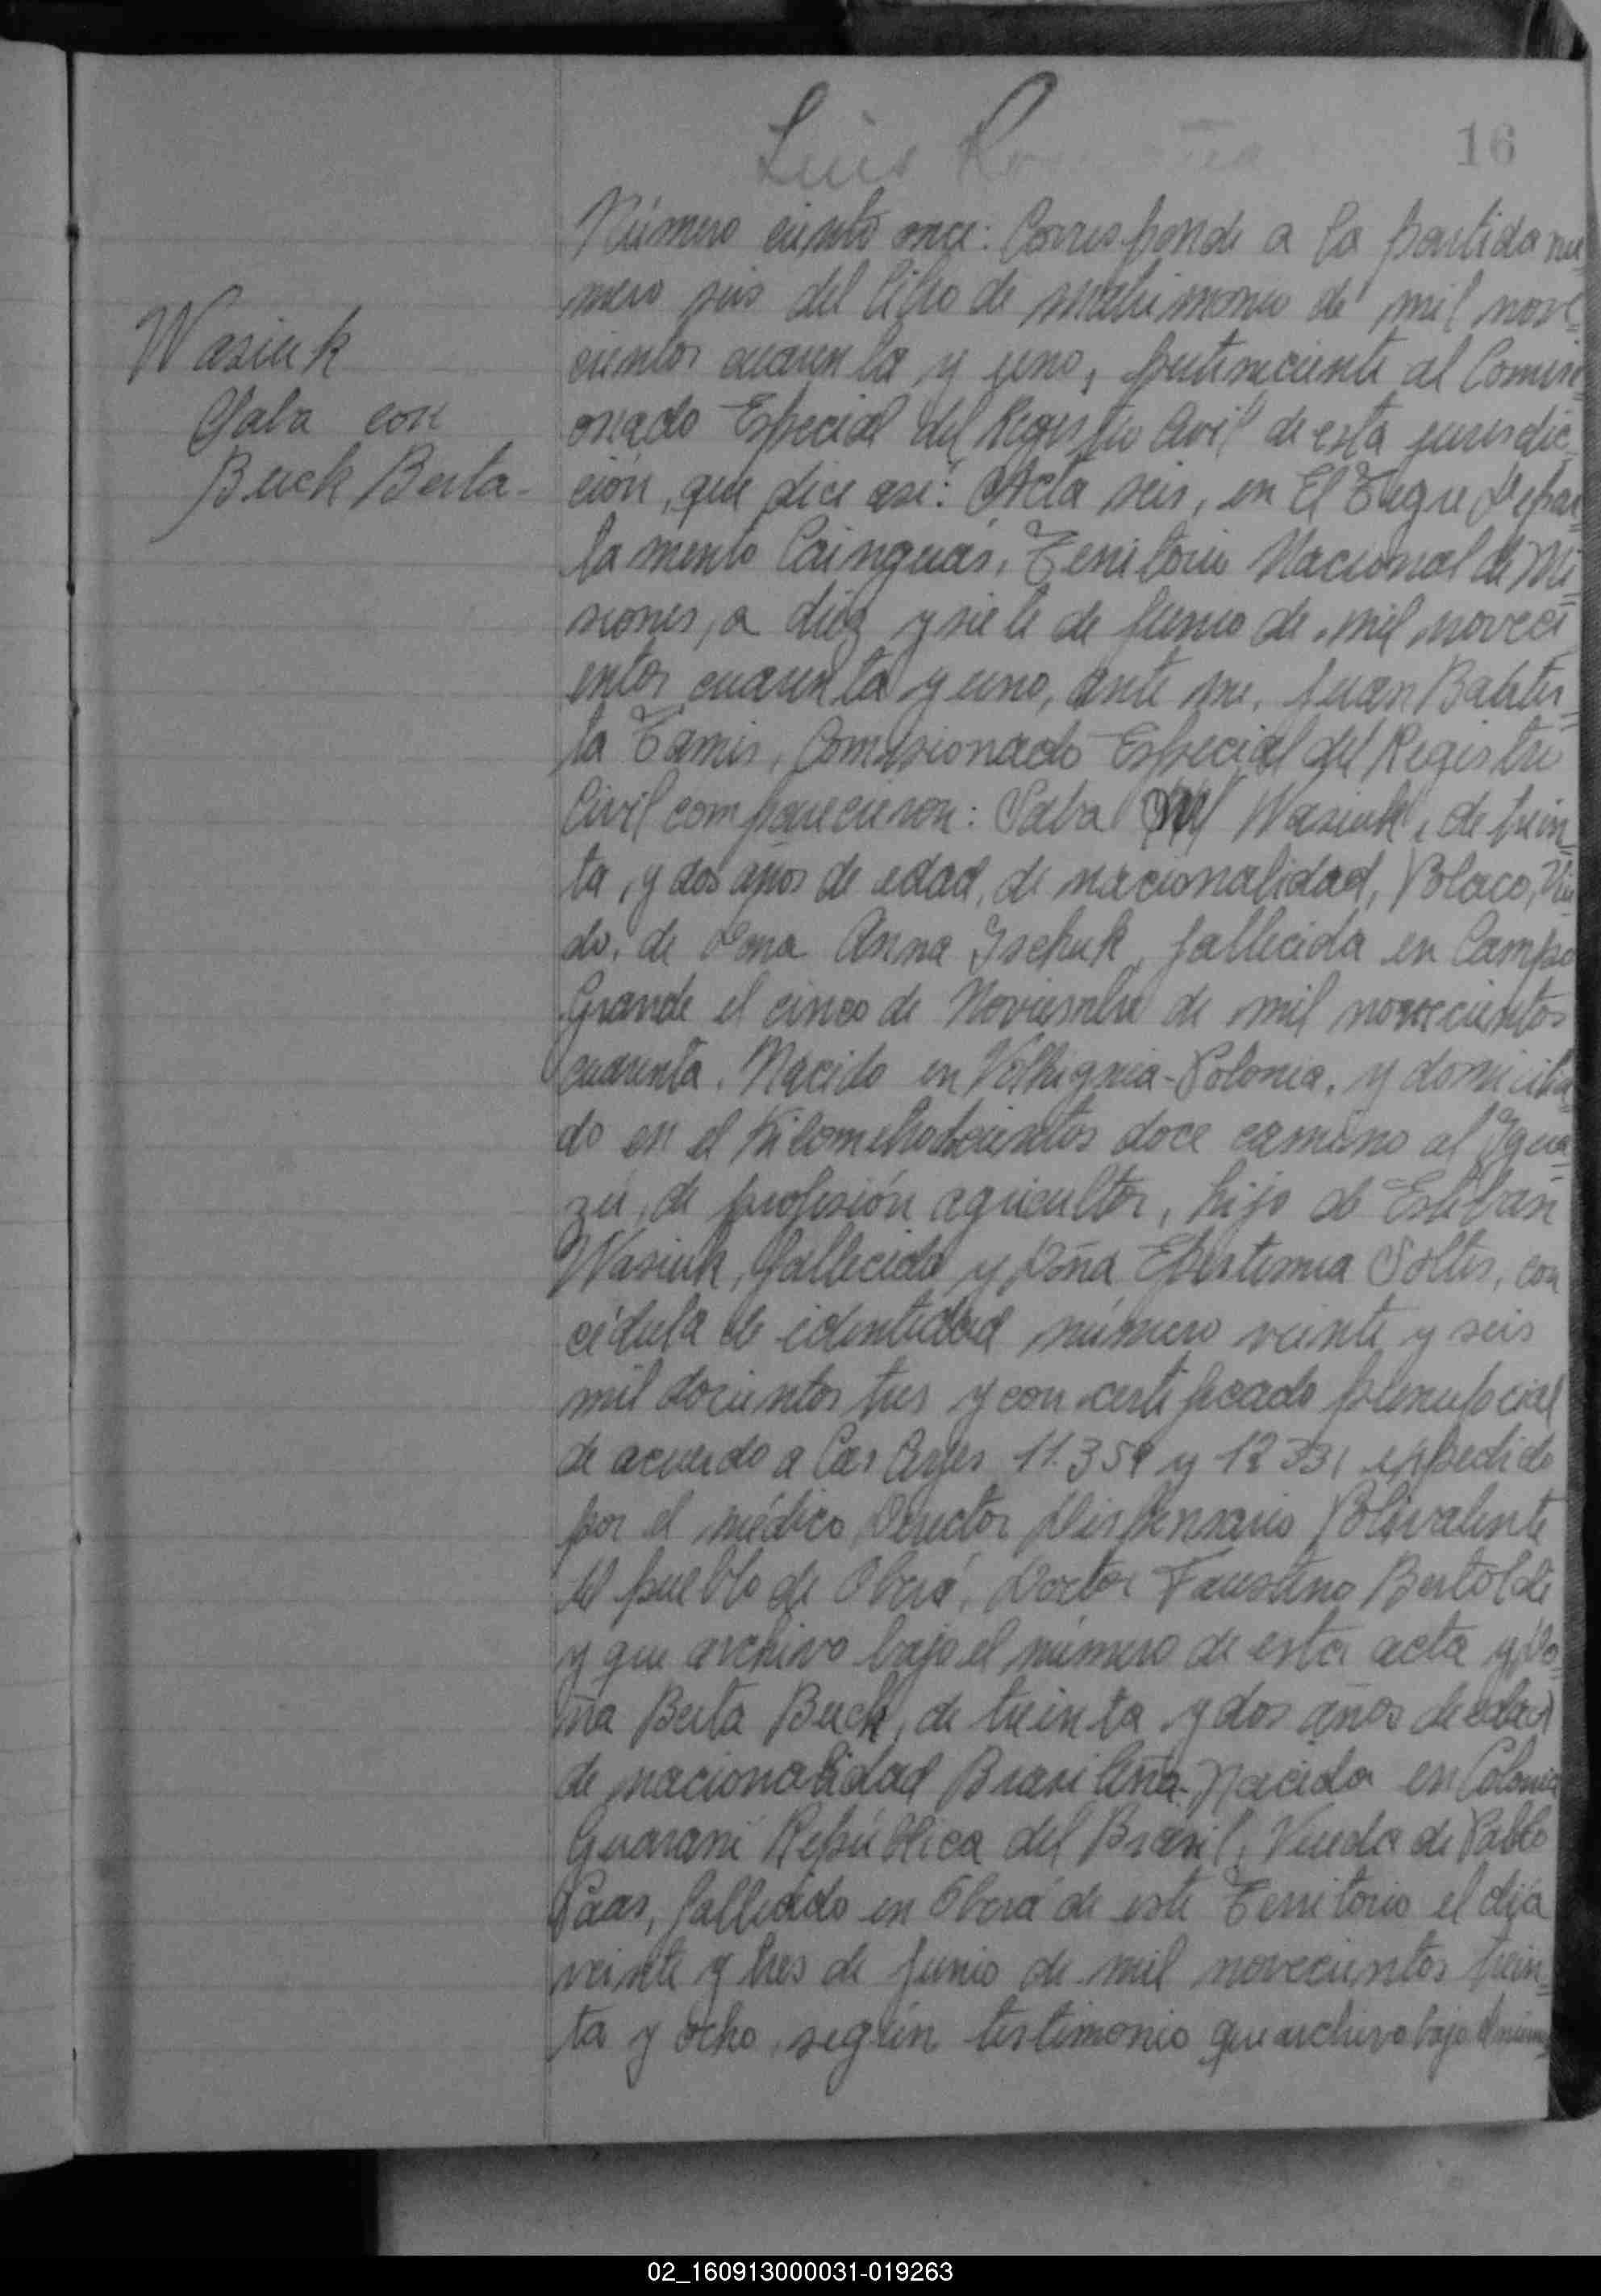 Luis Ro
16
Wasiuk
Saba con
Buck Berta-
Número ciento once: Corresponde a la partida nú-
mero seis del libro de matrimonio de mil nove-
cientos cuarenta y uno, perteneciente al Comisi-
onado Especial del Registro Civil de esta jurisdic-
ción, que dice así: "Acta seis, en El Tigre Depar-
tamento Cainguás, Territorio Nacional de Mi-
siones, a diez y siete de Junio de mil noveci-
entos cuarenta y uno, ante me, Juan Bautis-
ta Tamis, Comisionado Especial del Registro
Civil comparecieron: Saba Wasiuk, de trein-
ta, y dos años de edad, de nacionalidad, Polaco, Viu-
do, de Dna Anna Ischuk, fallecida en Campo
Grande el cinco de Noviembre de mil novecientos
cuarenta. Nacido en Volhignia-Polonia, y domicilia-
do en el Kilometro doscientos doce camino al Igua-
zú, de profesión agricultor, hijo de Esteban
Wasiuk, fallecido y Doña Epistimia Soltis, con
cédula de identidad número veinte y seis
mil docientos tres y con certificado prenupcial
de acuerdo a las leyes 11.359 y 12331 expedido
por el médico Director Dispensario Polivalente
del pueblo de Oberá, Doctor Faustino Bertoldi
y que archivo bajo el número de esta acta y Do-
ña Berta Buck, de treinta y dos años de edad
de nacionalidad Brasileña-Nacida en Colonia
Guarani República del Brasil, Viuda de Pablo
Paas, fallecido en Oberá de este Territorio el día
veinte y tres de Junio de mil novecientos trein-
ta y ocho, según testimonio que archivo bajo el núme-
02_160913000031-019263